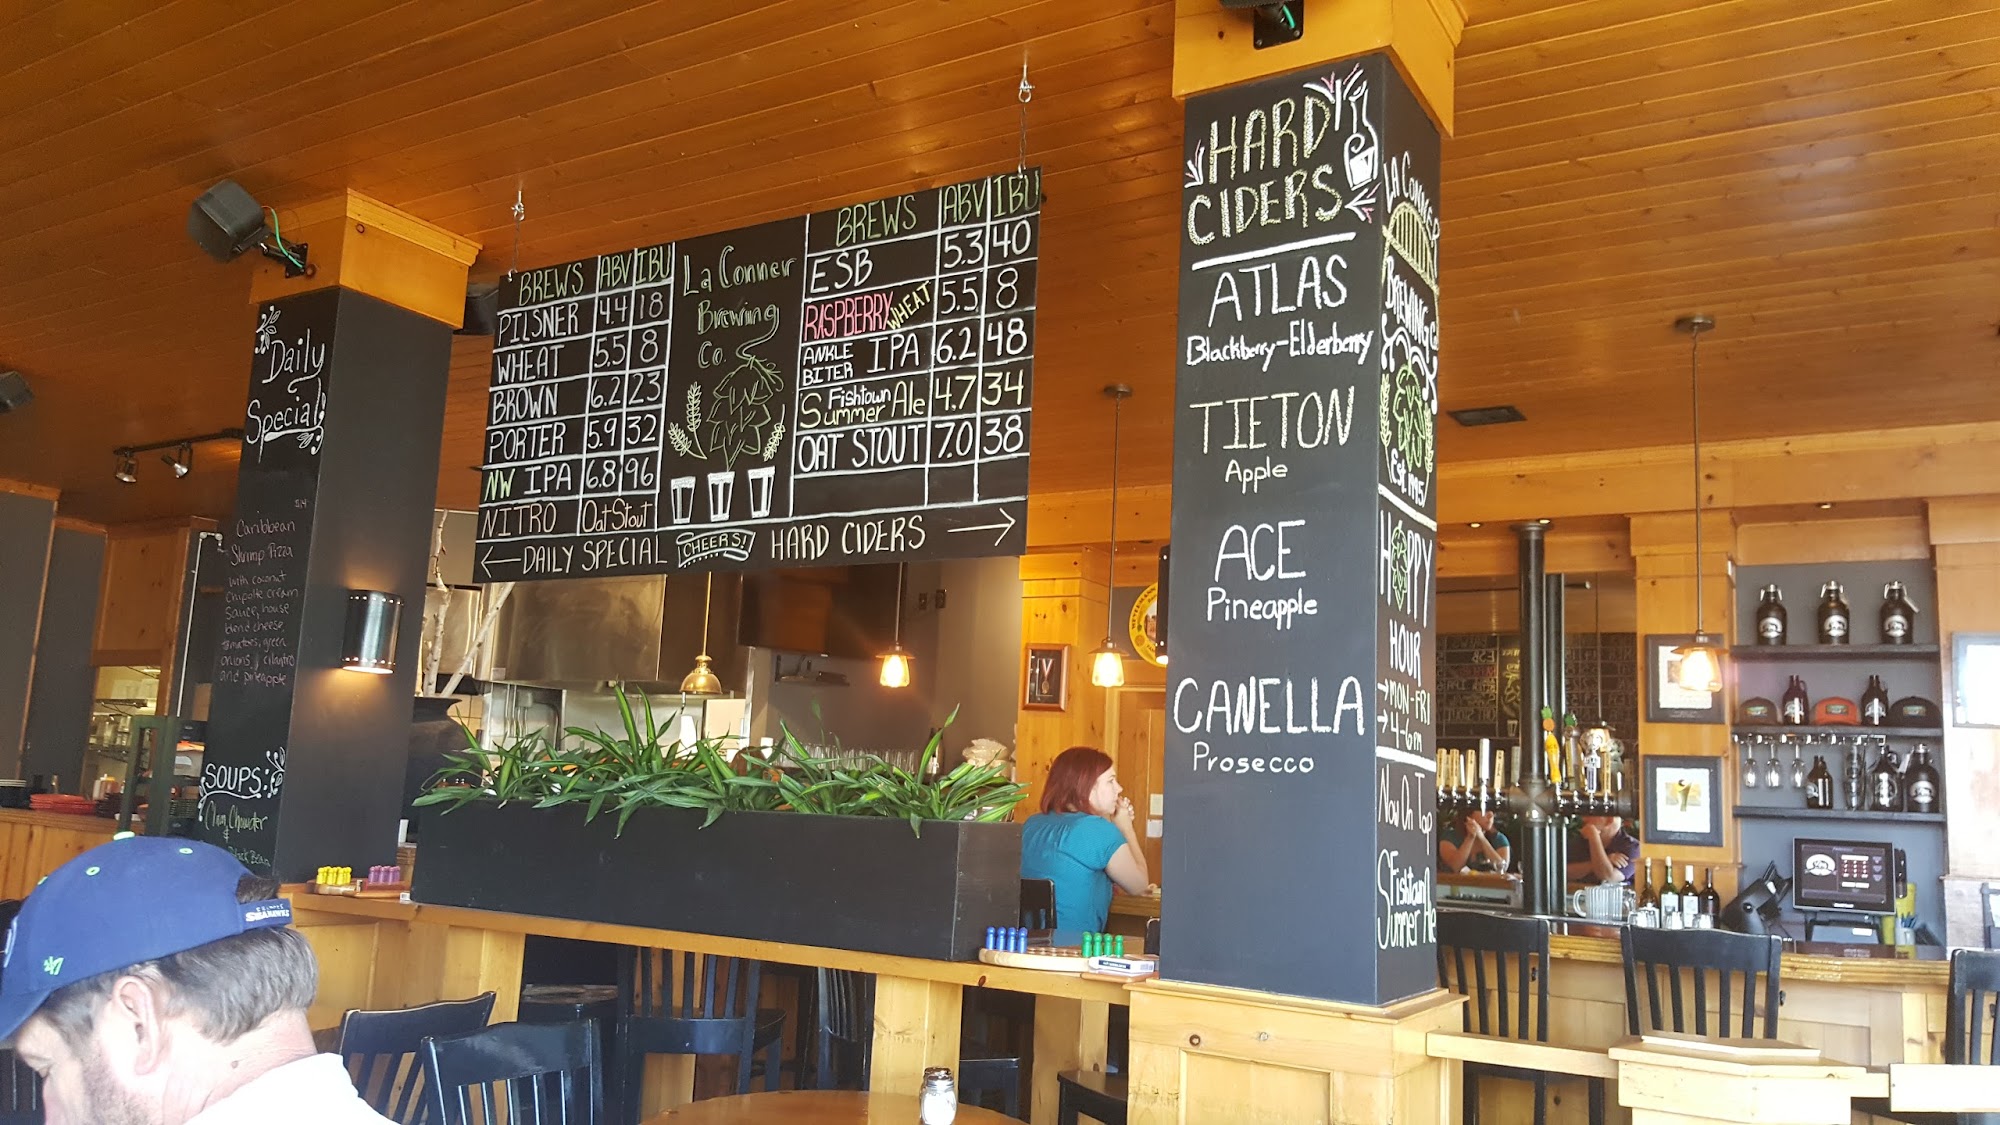 Daily
Special!
Caribbean
Shrimp Pizza
with coconut
Chipotle cream
Sauce, house
blend cheese,
tomatoes, green
onions, cilantro
and pineapple
SOUPS:
Clam Chowder
&
Black Bean
BREWS ABV IBU
PILSNER 4.4 18
WHEAT 5.5 8
BROWN 6.2 23
PORTER 5.9 32
NW IPA 6.8 96
NITRO Oat Stout
La Conner
Brewing
Co.
BREWS ABV IBU
ESB 5.3 40
RASPBERRY WHEAT 5.5 8
ANKLE BITER IPA 6.2 48
Fishtown
Summer Ale 4.7 34
OAT STOUT 7.0 38
← DAILY SPECIAL CHEERS! HARD CIDERS →
HARD
CIDERS
ATLAS
Blackberry-Elderberry
TIETON
Apple
ACE
Pineapple
CANELLA
Prosecco
LA CONNER
BREWING CO.
Est 1995
HAPPY
HOUR
→MON-FRI
→4-6PM
NOW ON TAP
Fishtown
Summer Ale
SEAHAWKS
47